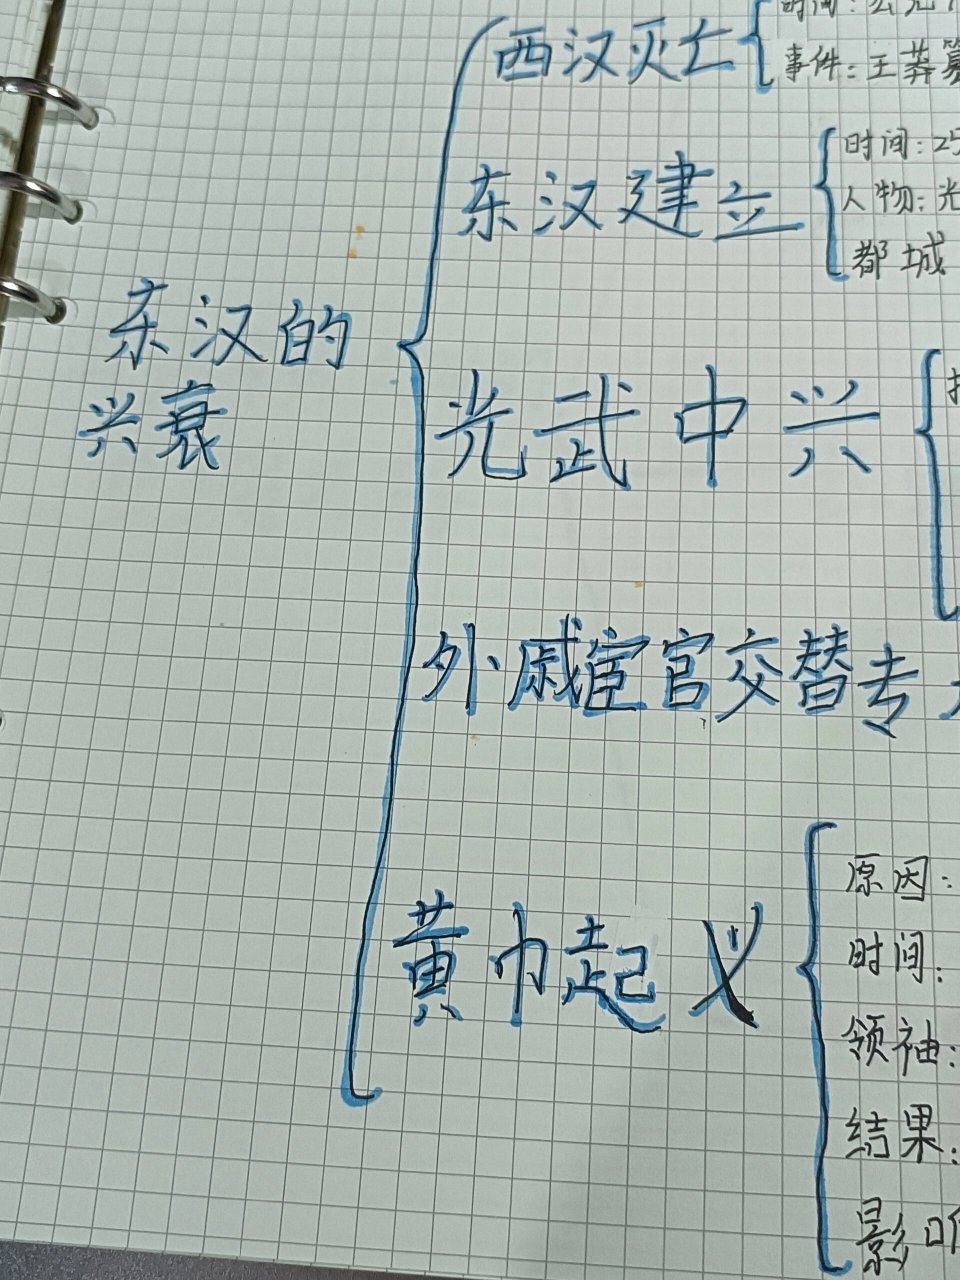 东汉的
兴衰
西汉灭亡
时间：公元
事件：王莽篡
东汉建立
时间：25
人物：光
都城
光武中兴
外戚宦官交替专
黄巾起义
原因：
时间：
领袖：
结果：
影响